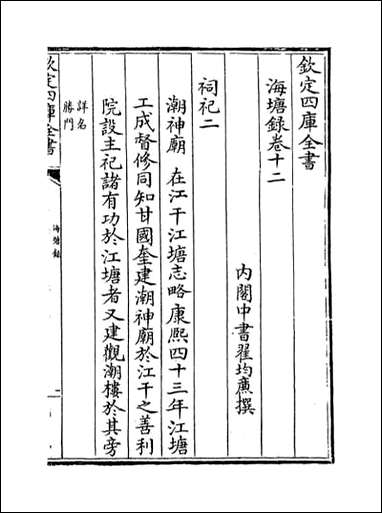 欽定四庫全書
海塘錄卷十二
內閣中書翟均廉撰
祠祀二
潮神廟 在江干江塘志略康熙四十三年江塘
工成督修同知甘國奎建潮神廟於江干之善利
院設主祀諸有功於江塘者又建觀潮樓於其旁
詳名
勝門
欽定四庫全書
海塘錄